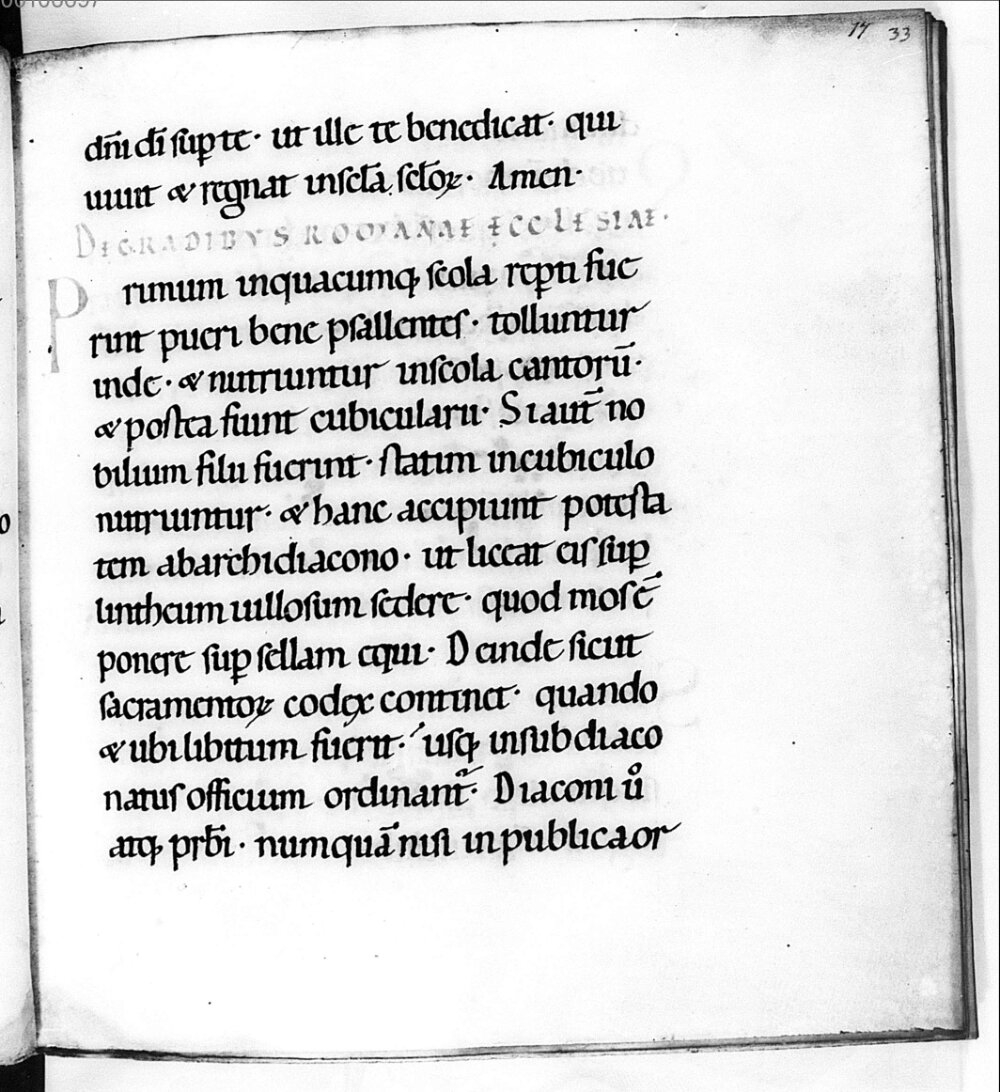 17 33
dn̄i dī sup̱ te· ut ille te benedicat· qui
uiuit & regnat in scl̄a scl̄oꝝ· Amen·
DE GRADIBVS ROMANAE ECCLESIAE·
Primum in quacumq; scola rep̱ti fue
rint pueri bene psallentes· tolluntur
inde· & nutriuntur in scola cantorū·
& postea fiunt cubicularii· Si aut̄ no
bilium filii fuerint· statim in cubiculo
nutriuntur· & hanc accipiunt potesta
tem ab archidiacono· ut liceat eis sup̱
lintheum uillosum sedere· quod mos ē
ponere sup̱ sellam equi· Deinde sicut
sacramentoꝝ codex continet· quando
& ubi libitum fuerit· usq; in subdiaco
natus officium ordinant᷑· Diaconi uͦ
atq; prb̄i· numquā nisi in publica or